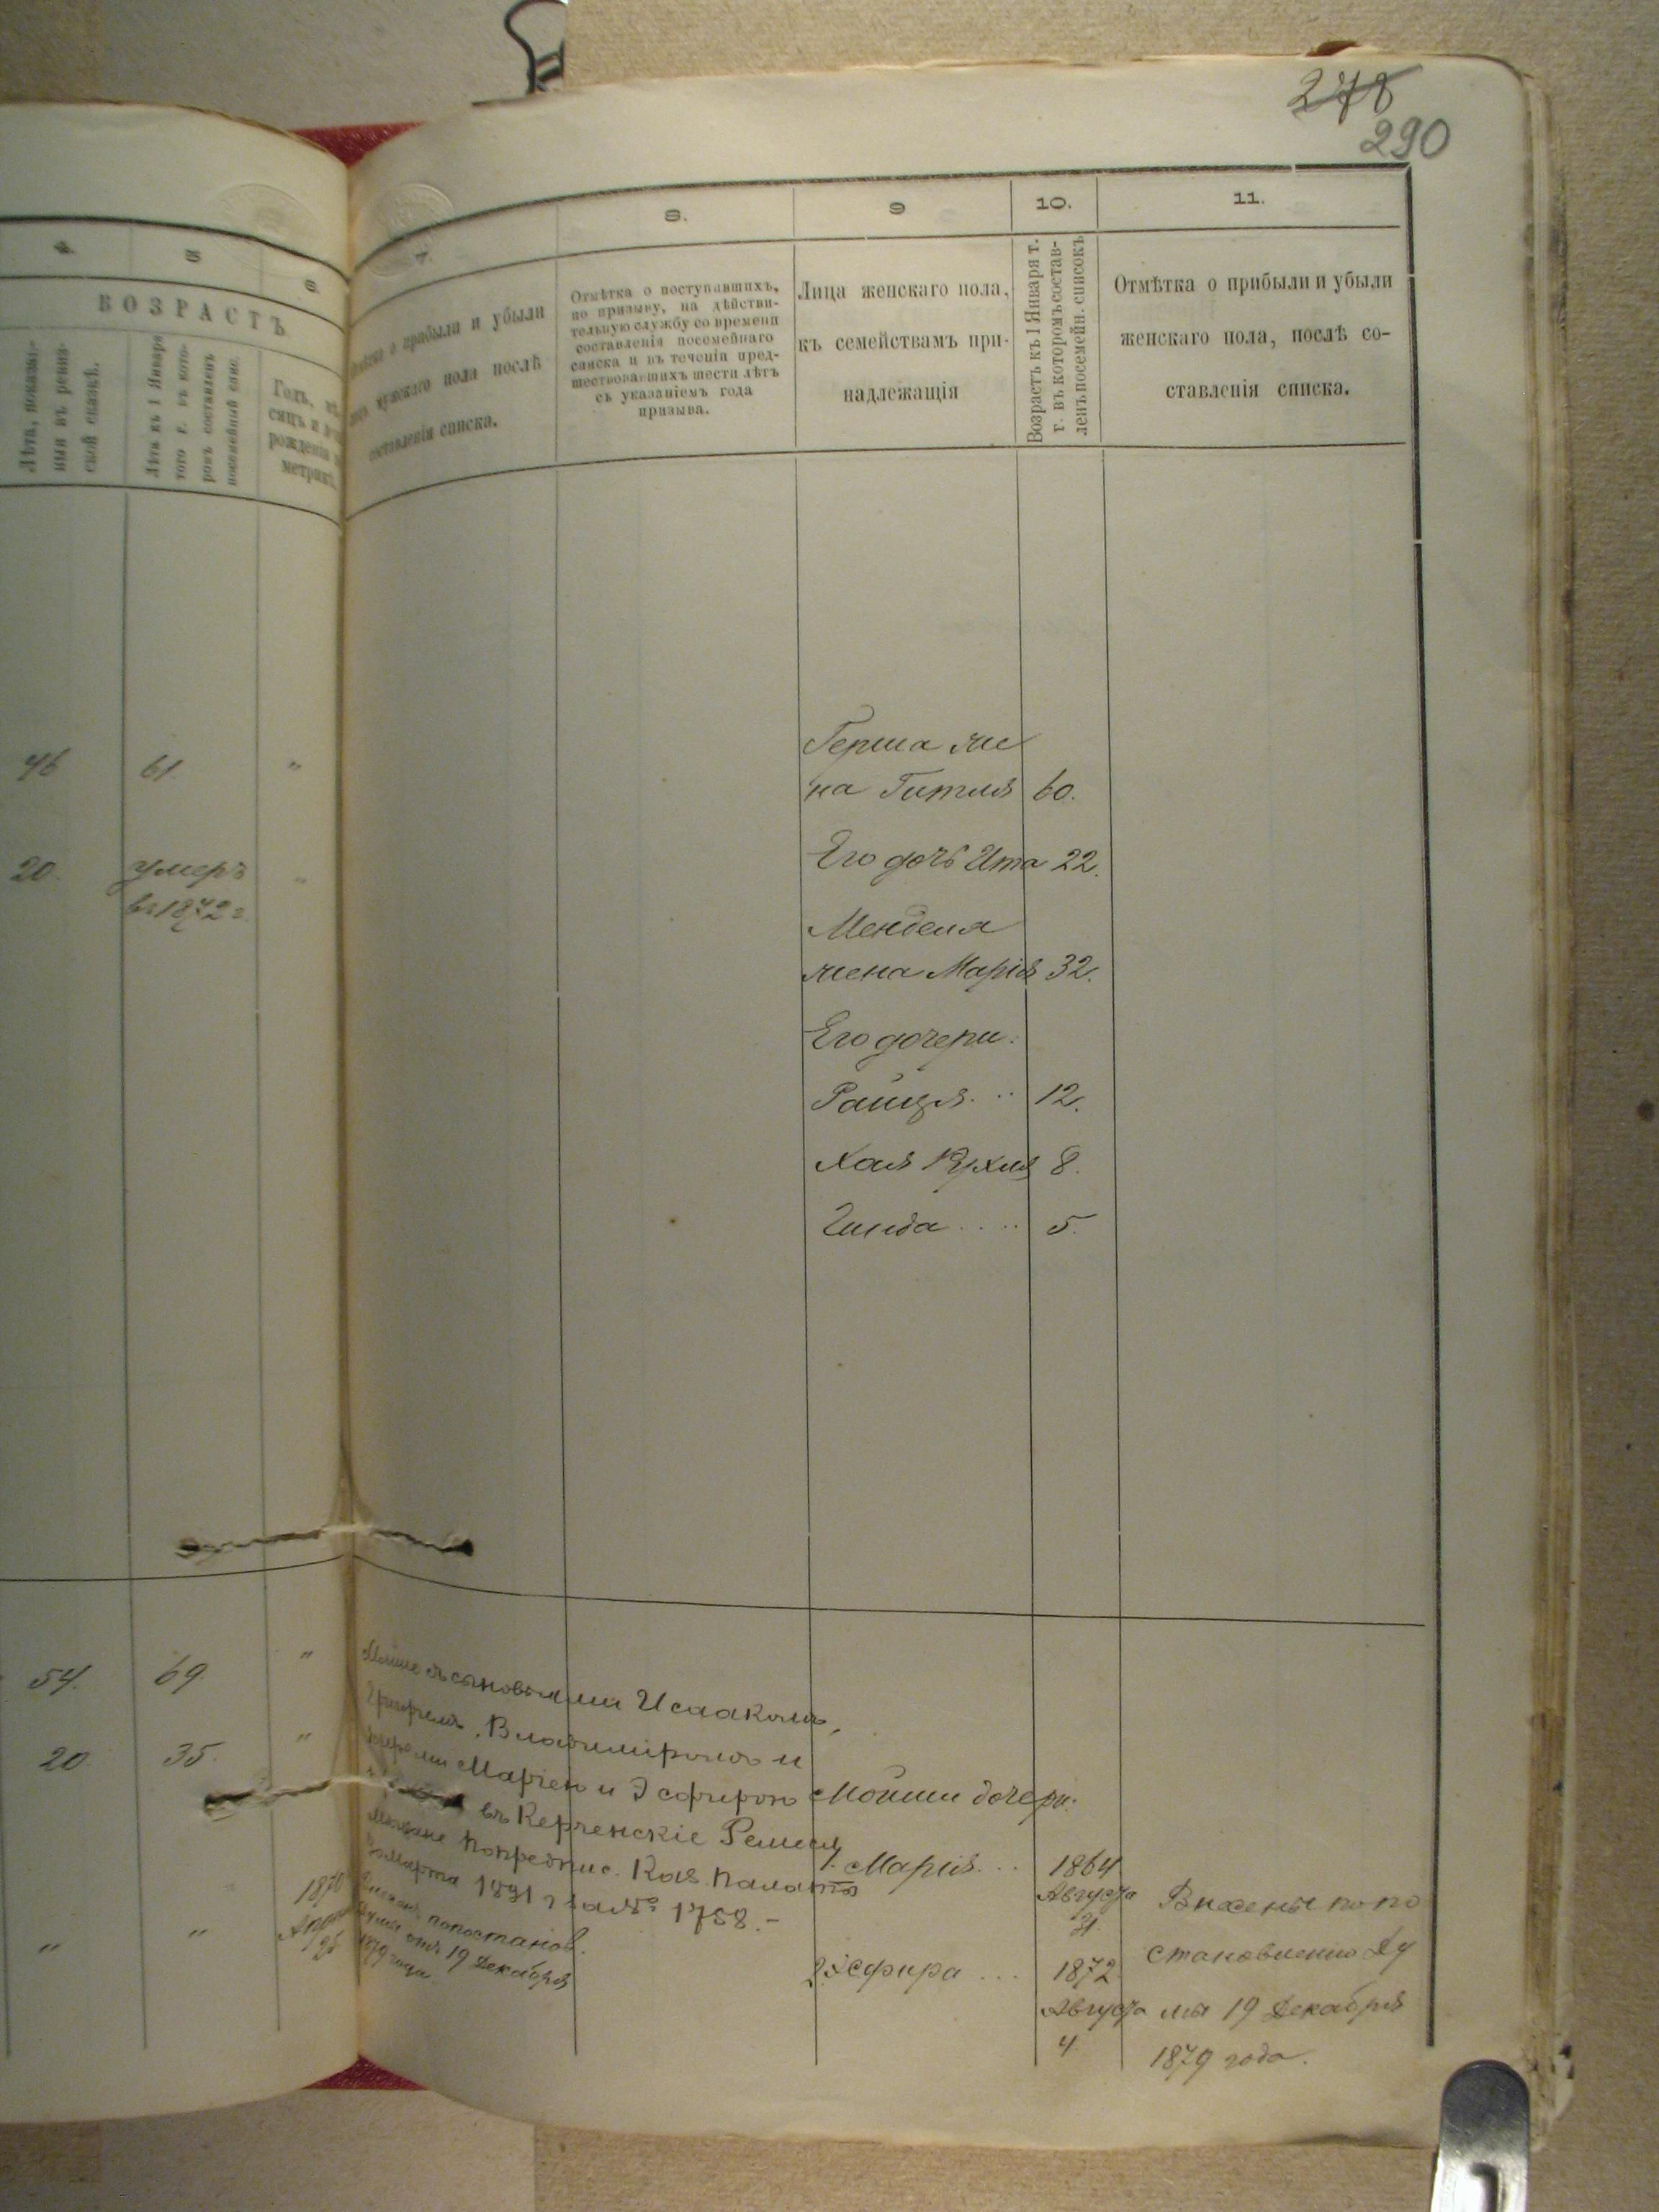 278
290
4.
5
6.
ВОЗРАСТЪ
Лѣта, показан-
ныя въ ревиз-
ской сказкѣ.
Лѣта къ 1 Января
того г. въ кото-
ромъ составленъ
посемейный спис.
Годъ, мѣ
сяцъ и
рожденія
метрик
46
61
"
20.
умеръ
въ 1872 г.
54.
69.
"
20.
35.
"
"
"
1870
25
7.
8.
9
10.
11.
о прибыли и убыли
мужскаго пола послѣ
составленія списка.
Отмѣтка о поступившихъ,
по призыву, на дѣйстви-
тельную службу со времени
составленія посемейнаго
списка и въ теченіи пред-
шествовавшихъ шести лѣтъ
съ указаніемъ года
призыва.
Лица женскаго пола,
къ семействамъ при-
надлежащія
Возрастъ къ 1 Января т.
г. въ которомъ состав-
ленъ посемейн. списокъ
Отмѣтка о прибыли и убыли
женскаго пола, послѣ со-
ставленія списка.
Герша же
на Гитля 60.
Его дочь Ита 22.
Менделя
жена Марія 32.
Его дочери:
Райця 12.
Хая Рухля 8.
5.
съ сыновьями Исаакомъ,
Владиміромъ и
Маріею и Эсфирою
въ Керченскіе Ремесл
мѣщане по предпис. Каз. Палаты
Марта 1891 г. за № 1758.-
по постанов.
Думы отъ 19 Декабря
1879 года
Мойши дочери:
1. Марія 1864
Августа
31.
2. Эсфира 1872
Августа
4.
Внесены по по
становленію Ду
мы 19 Декабря
1879 года.